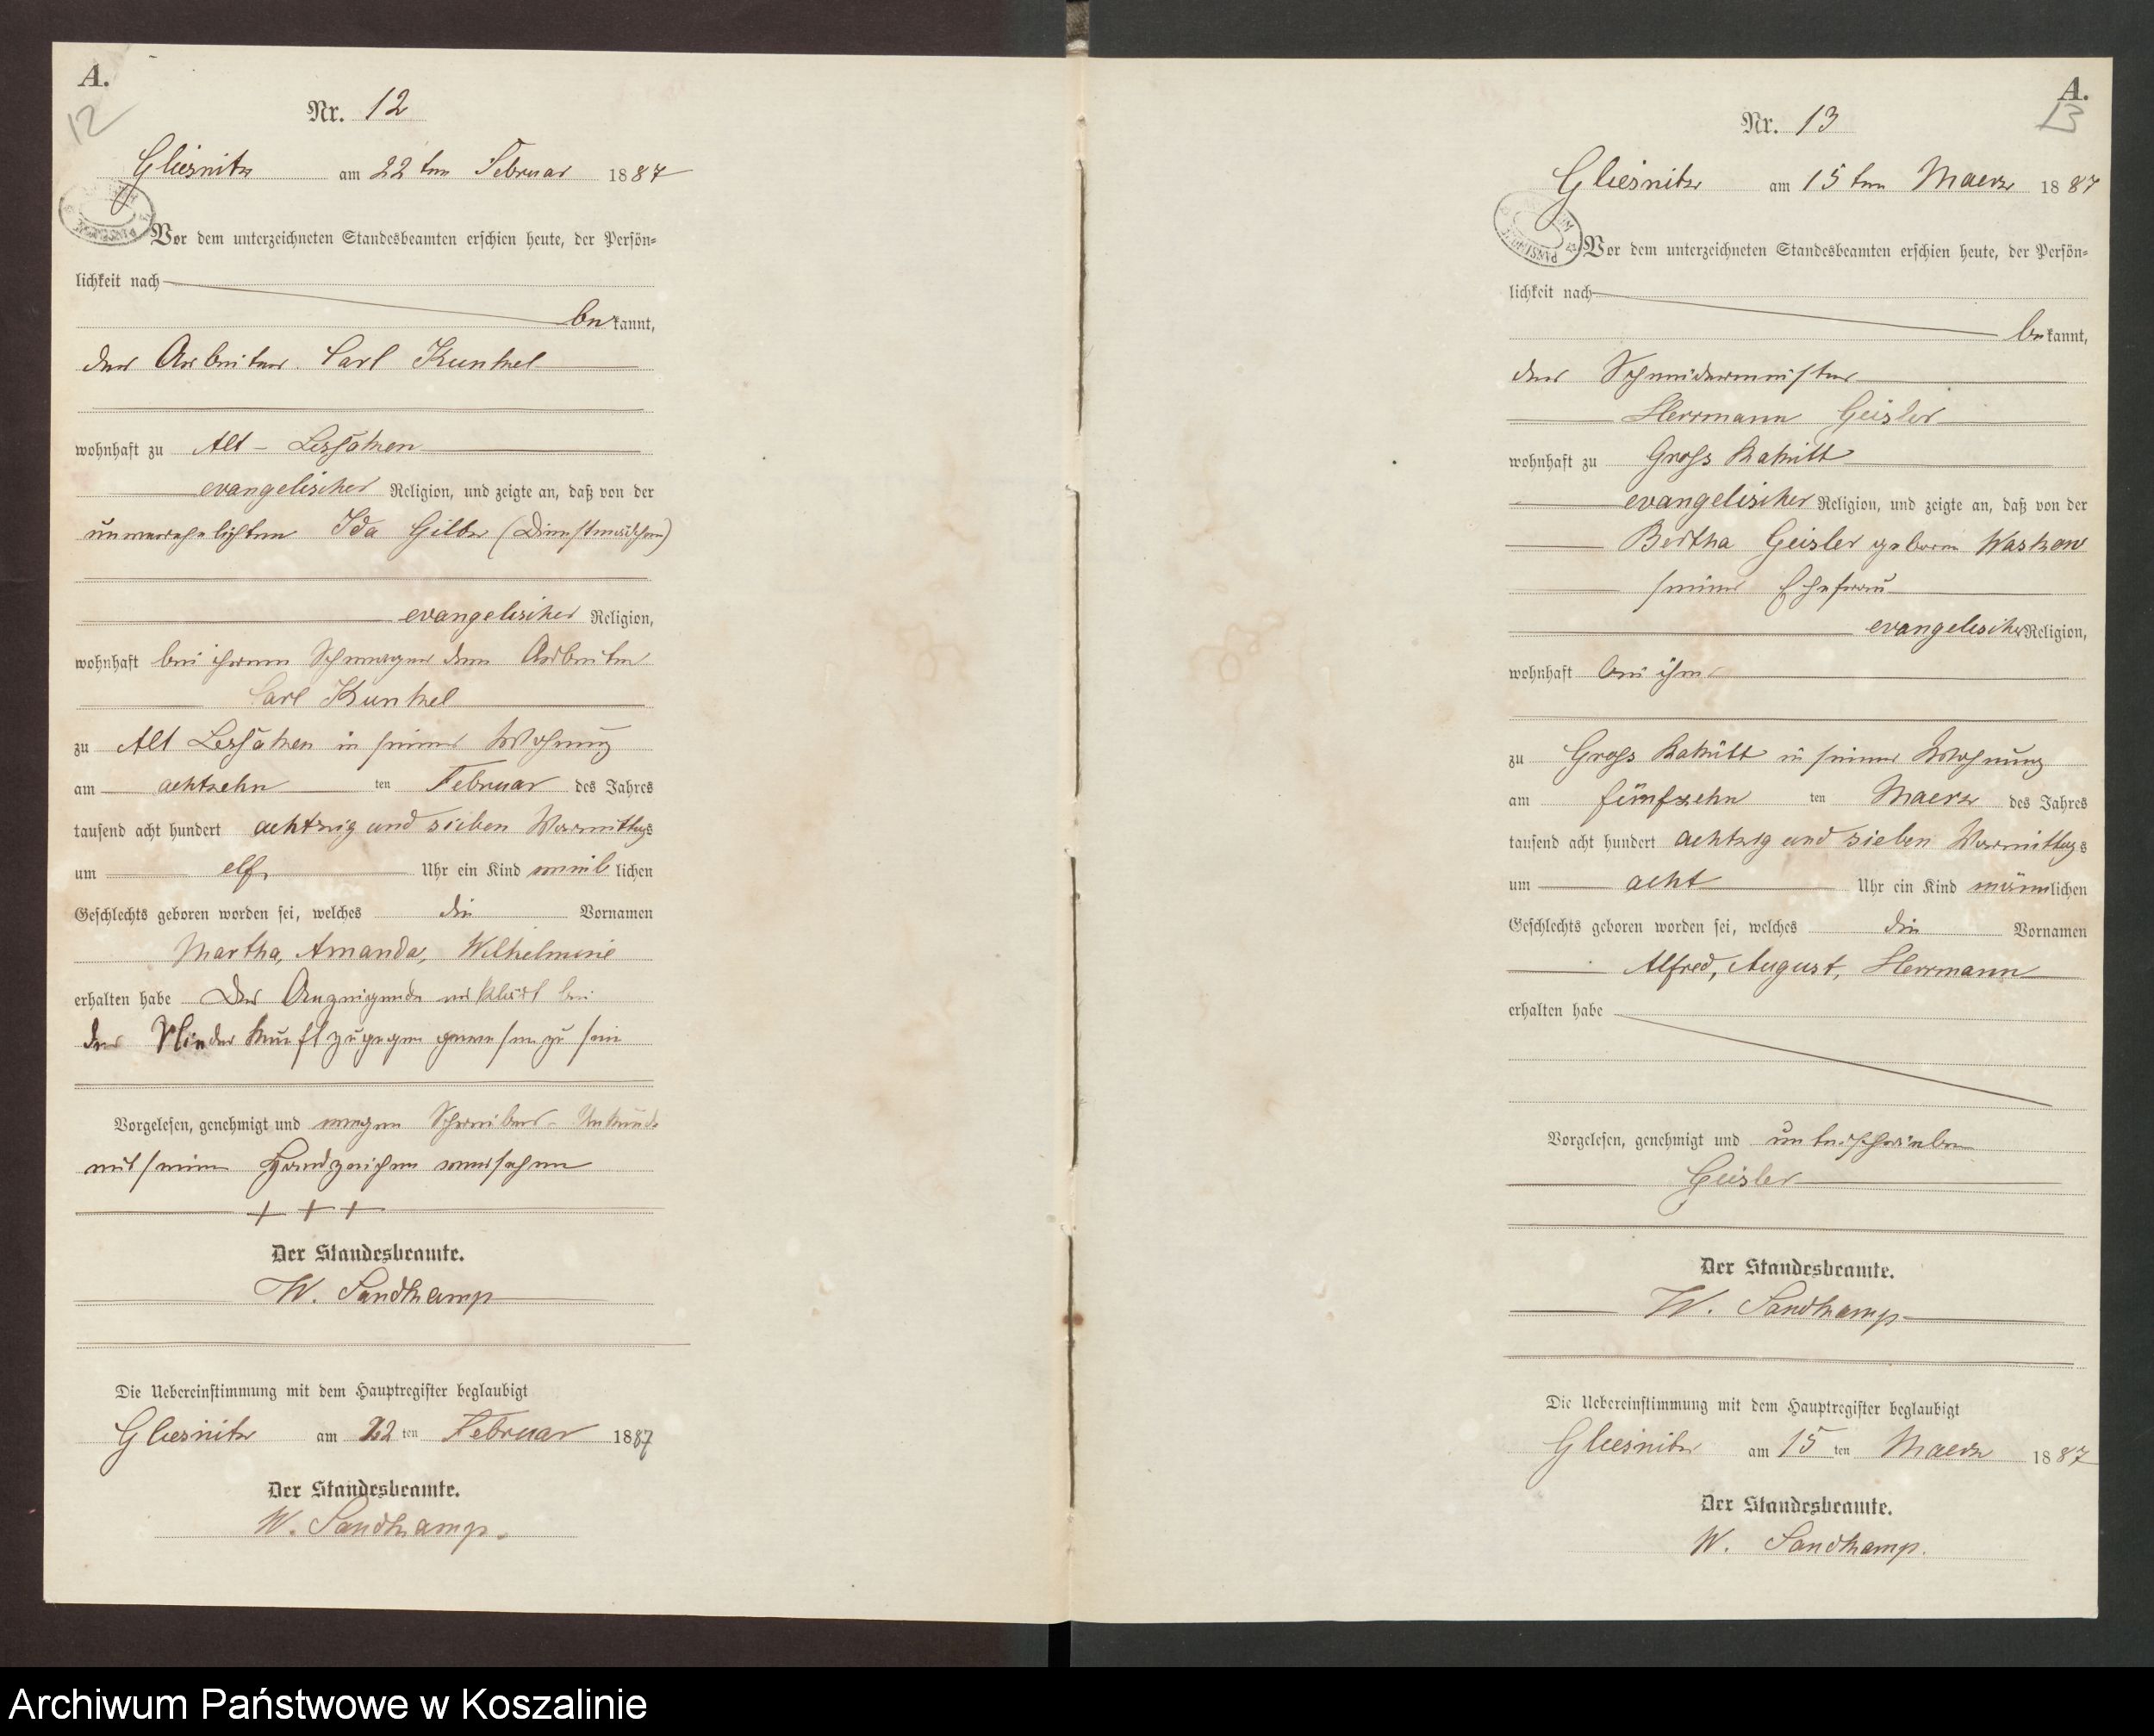 A.
12
Nr. 12
Gliesnitz am 22ten Februar 1887
Vor dem unterzeichneten Standesbeamten erschien heute, der Persön=
lichkeit nach
bekannt,
der Arbeiter Carl Kunkel
wohnhaft zu Alt-
evangelischer Religion, und zeigte an, daß von der
unverehelichten Ida (Dienstmädchen)
evangelischer Religion,
wohnhaft bei ihrem Schwager dem Arbeiter
Carl Kunkel
zu Alt in seiner Wohnung
am achtzehn ten Februar des Jahres
tausend acht hundert achtzig und sieben Vormittags
um elf Uhr ein Kind weiblichen
Geschlechts geboren worden sei, welches die Vornamen
Martha, Amanda, Wilhelmine
erhalten habe Der Anzeigende erklärt bei
der Niederkunft zugegen gewesen zu sein
Vorgelesen, genehmigt und wegen Schreibens-Unkunde
mit seinem Handzeichen versehen
+ + +
Der Standesbeamte.
W. Sandkamp
Die Uebereinstimmung mit dem Hauptregister beglaubigt
Gliesnitz am 22ten Februar 1887
Der Standesbeamte.
W. Sandkamp.
A.
13
Nr. 13
Gliesnitz am 15ten Maerz 1887
Vor dem unterzeichneten Standesbeamten erschien heute, der Persön=
lichkeit nach
bekannt,
der Schneidermeister
Herrmann Geisler
wohnhaft zu Gross Rakitt
evangelischer Religion, und zeigte an, daß von der
Bertha Geisler geboren Waskow
seiner Ehefrau
evangelischer Religion,
wohnhaft bei ihm
zu Gross Rakitt in seiner Wohnung
am fünfzehn ten Maerz des Jahres
tausend acht hundert achtzig und sieben Vormittags
um acht Uhr ein Kind männlichen
Geschlechts geboren worden sei, welches die Vornamen
Alfred, August, Herrmann
erhalten habe
Vorgelesen, genehmigt und unterschrieben
Geisler
Der Standesbeamte.
W. Sandkamp
Die Uebereinstimmung mit dem Hauptregister beglaubigt
Gliesnitz am 15 ten Maerz 1887
Der Standesbeamte.
W. Sandkamp.
Archiwum Państwowe w Koszalinie